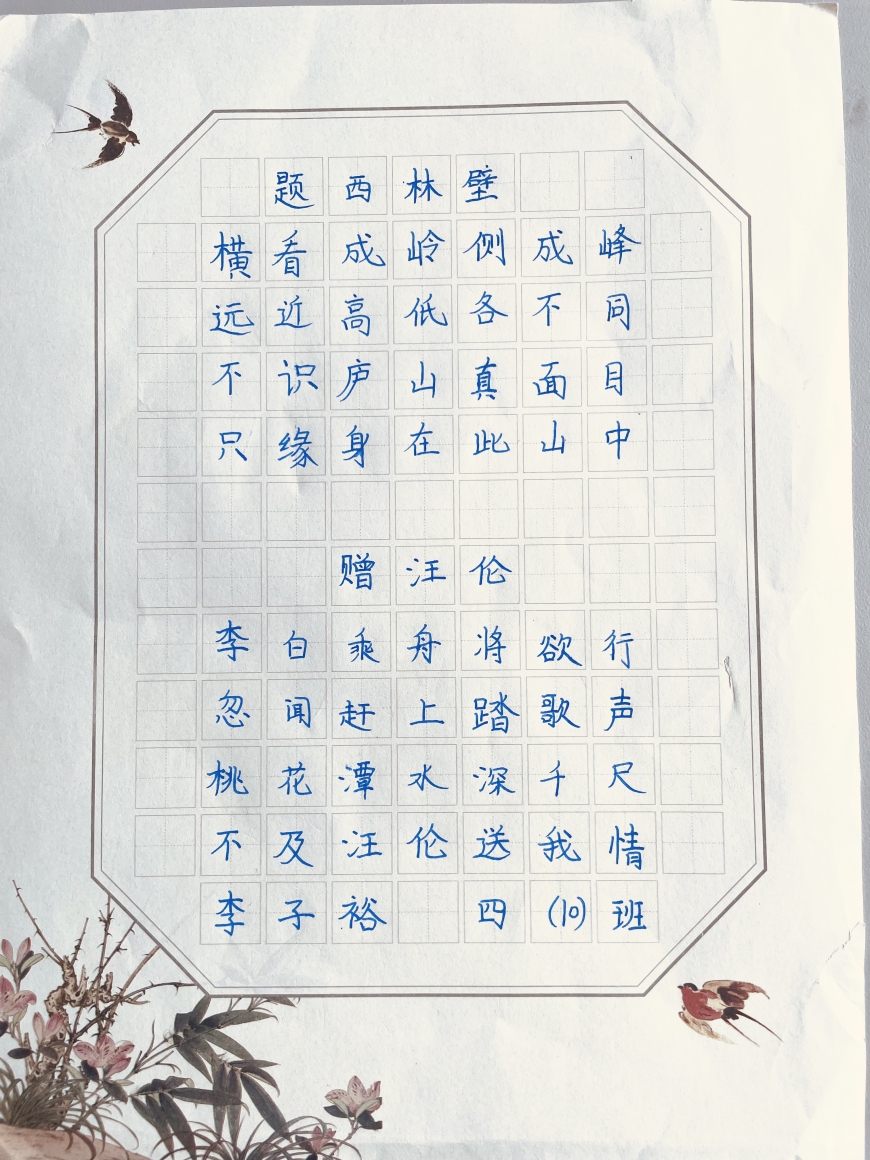 题西林壁
横看成岭侧成峰
远近高低各不同
不识庐山真面目
只缘身在此山中
赠汪伦
李白乘舟将欲行
忽闻赶上踏歌声
桃花潭水深千尺
不及汪伦送我情
李子裕 四(10)班